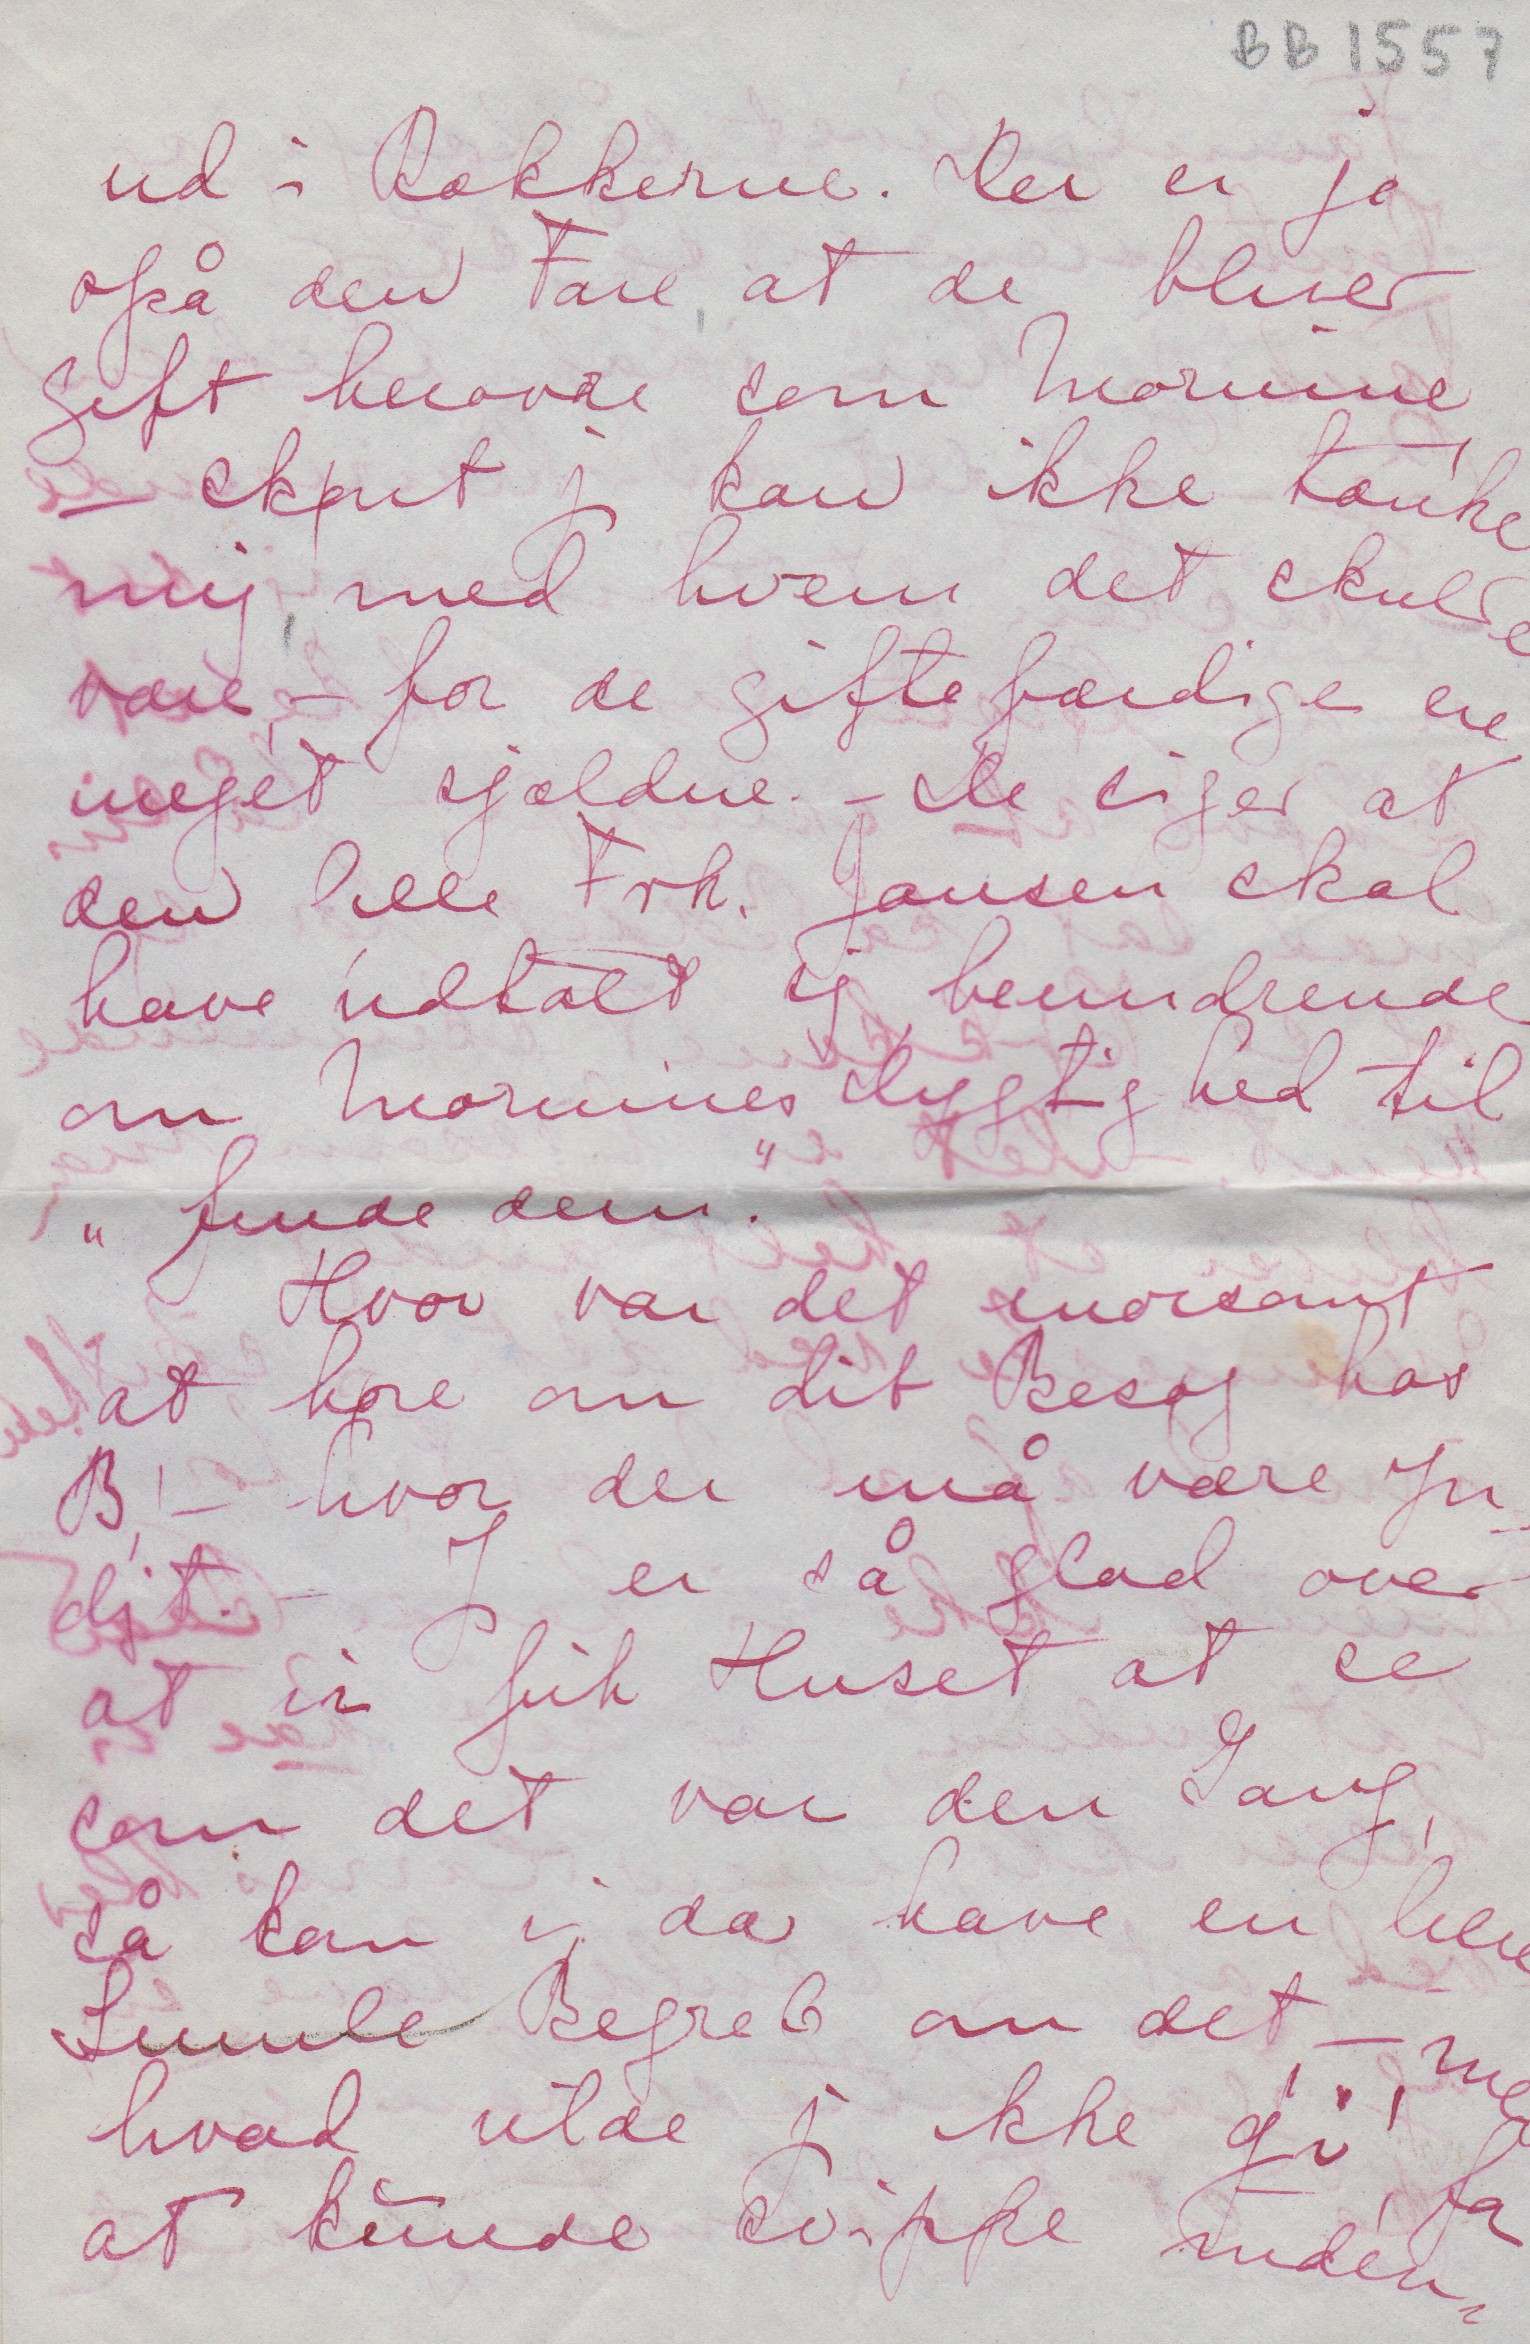 BB 1557
ud i Rækkerne. Der er jo
også den Fare, at de bliver
gift herovre som Mornine,
– skønt j kan ikke tænke
mig, med hvem det skulde
være, – for de giftefærdige ere
meget sjældne. – De siger at
den lille Frk. Jansen skal
have udtalt sig beundrende
om Mornines Dygtighed til
"finde dem."
Hvor var det morsomt
at høre om dit Besøg hos
B, – hvor der må være yn-
digt. – J er så glad over
at vi fik Huset at se
som det var den Gang,
så kan vi da have en lille
Smule Begreb om det, – men
hvad vilde j ikke gi' for
at kunde svippe inden